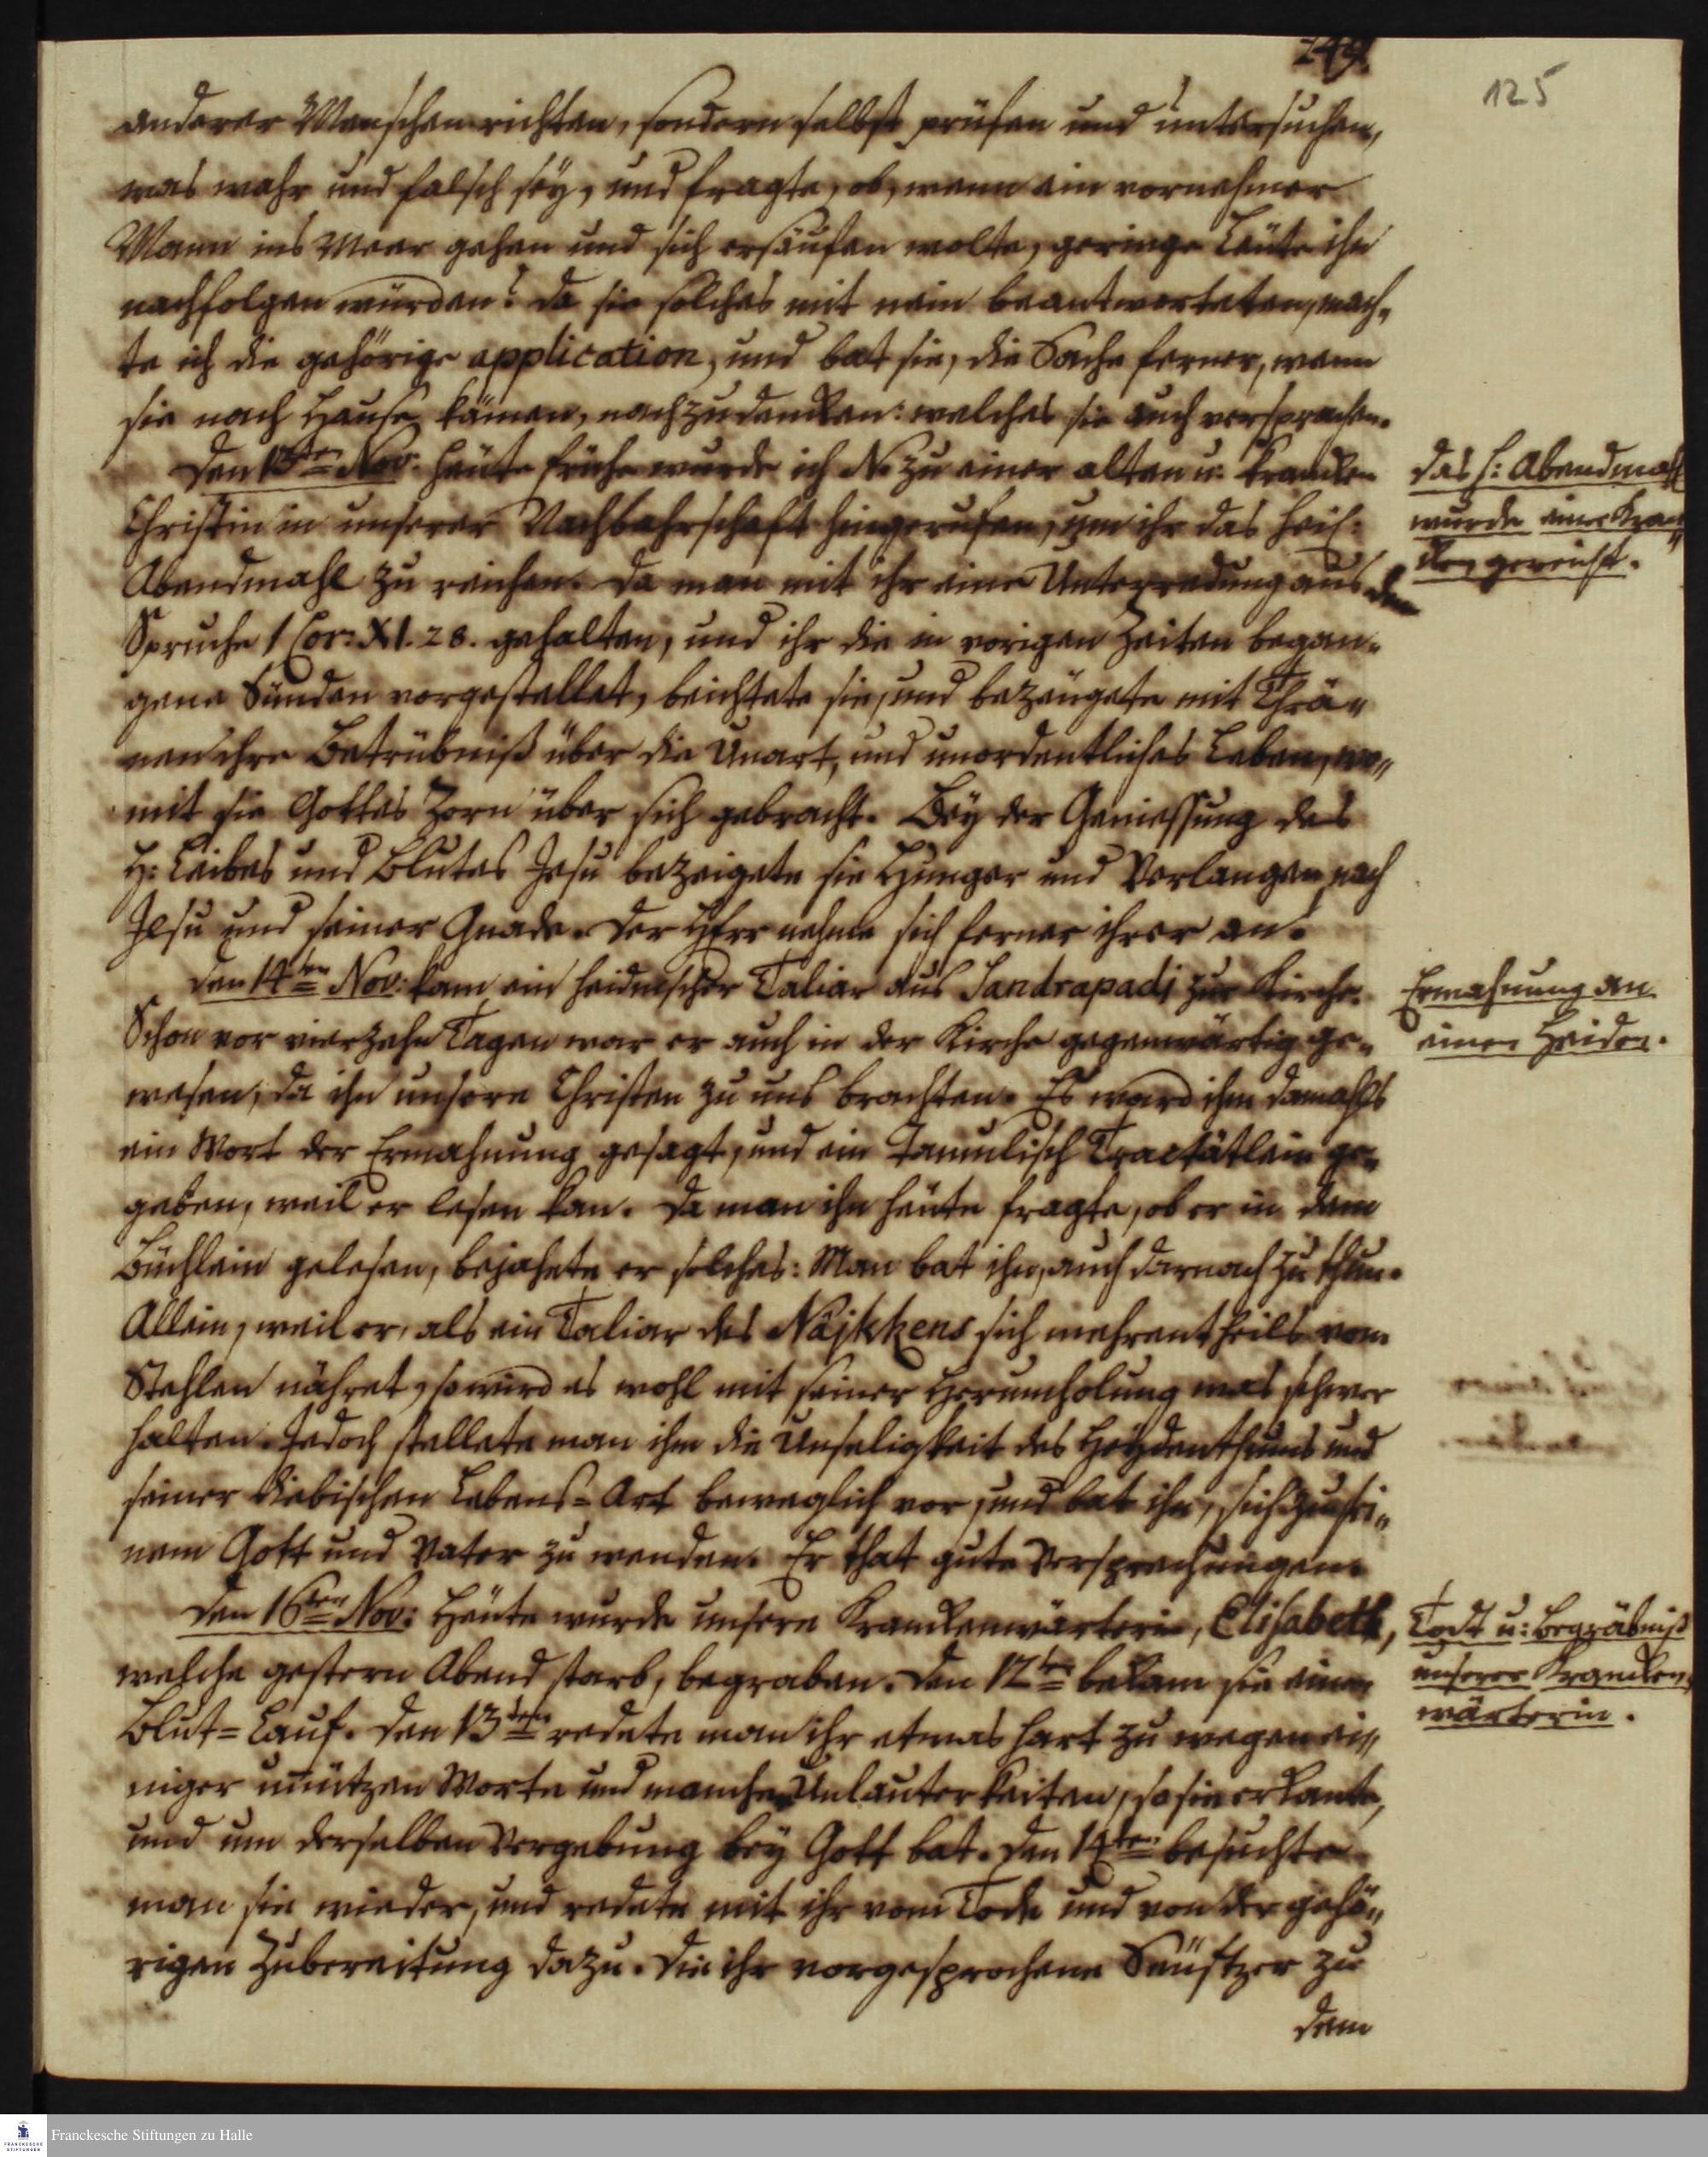 249.
125
anderer Menschen richten, sondern selbst prüfen und untersuchen,
was wahr und falsch sey, und fragte, ob, wenn ein vornehmer
Mann ins Meer gehen und sich ersäufen wolte, geringe Leüte ihm
nachfolgen würden? Da sie solches mit nein beantworteten, mach„
te ich die gehörige application, und bat sie, die Sache ferner, wenn
sie nach Hause kämen, nachzudencken: welches sie auch versprachen.
Den 13ten Nov: Heüte frühe wurde ich N. zu einer alten u. krancken
Christin in unserer Nachbahrschaft hingerufen, um ihr das heil:
Abendmahl zu reichen. Da man mit ihr eine Unterredung aus dem
Spruche 1 Cor: XI. 28. gehalten, und ihr die in vorigen Zeiten began„
gene Sünden vorgestellet, beichtete sie, und bezeügete mit Thrä„
nen ihre Betrübniß über die Unart, und unordentliches Leben, wo„
mit sie Gottes Zorn über sich gebracht. Bey der Geniessung des
H: Leibes und Blutes Jesu bezeigete sie Hunger und Verlangen nach
Jesu und seiner Gnade. Der HErr nehme sich ferner ihrer an.
Das H: Abendmahl
wurde einer Kran„
cken gereicht.
Den 14ten Nov: kam ein heidnischer Taliar aus Sandrapadi zur Kirche.
Schon vor vierzehn Tagen war er auch in der Kirche gegenwärtig ge„
wesen, da ihn unsere Christen zu uns brachten. Es ward ihm damahls
ein Wort der Ermahnung gesagt, und ein Tamulisch Tractätlein ge„
geben, weil er lesen kan. Da man ihn heüte fragte, ob er in dem
Büchlein gelesen, bejahete er solches: Man bat ihn, auch darnach zu thun.
Allein, weil er, als ein Taliar des Näjkkens sich mehrentheils vom
Stehlen nähret, so wird es wohl mit seiner Herumholung was schwer
halten. Jedoch stellete man ihm die Unseligkeit des Heydenthums und
seiner diebischen Lebens=Art beweglich vor, und bat ihn, sich zu sei„
nem Gott und Vater zu wenden. Er that gute Versprechungen.
Ermahnung an
einen Heiden.
Den 16ten Nov: Heüte wurde unsere Kranckenwärterin, Elisabeth,
welche gestern Abend starb, begraben. Den 12ten bekam sie einen
Blut=Lauf. Den 13ten redete man ihr etwas hart zu wegen ei„
niger unützen Worte und mancher Unlauterkeiten, so sie erkante,
und um derselben Vergebung bey Gott bat. Den 14ten besuchte
man sie wieder, und redete mit ihr vom Tode und von der gehö„
rigen Zubereitung dazu. Die ihr vorgesprochene Seüftzer zu
dem
Todt u: Begräbniß
unserer Krancken„
wärterin.
Franckesche Stiftungen zu Halle
FRANCKESCHE
STIFTUNGEN